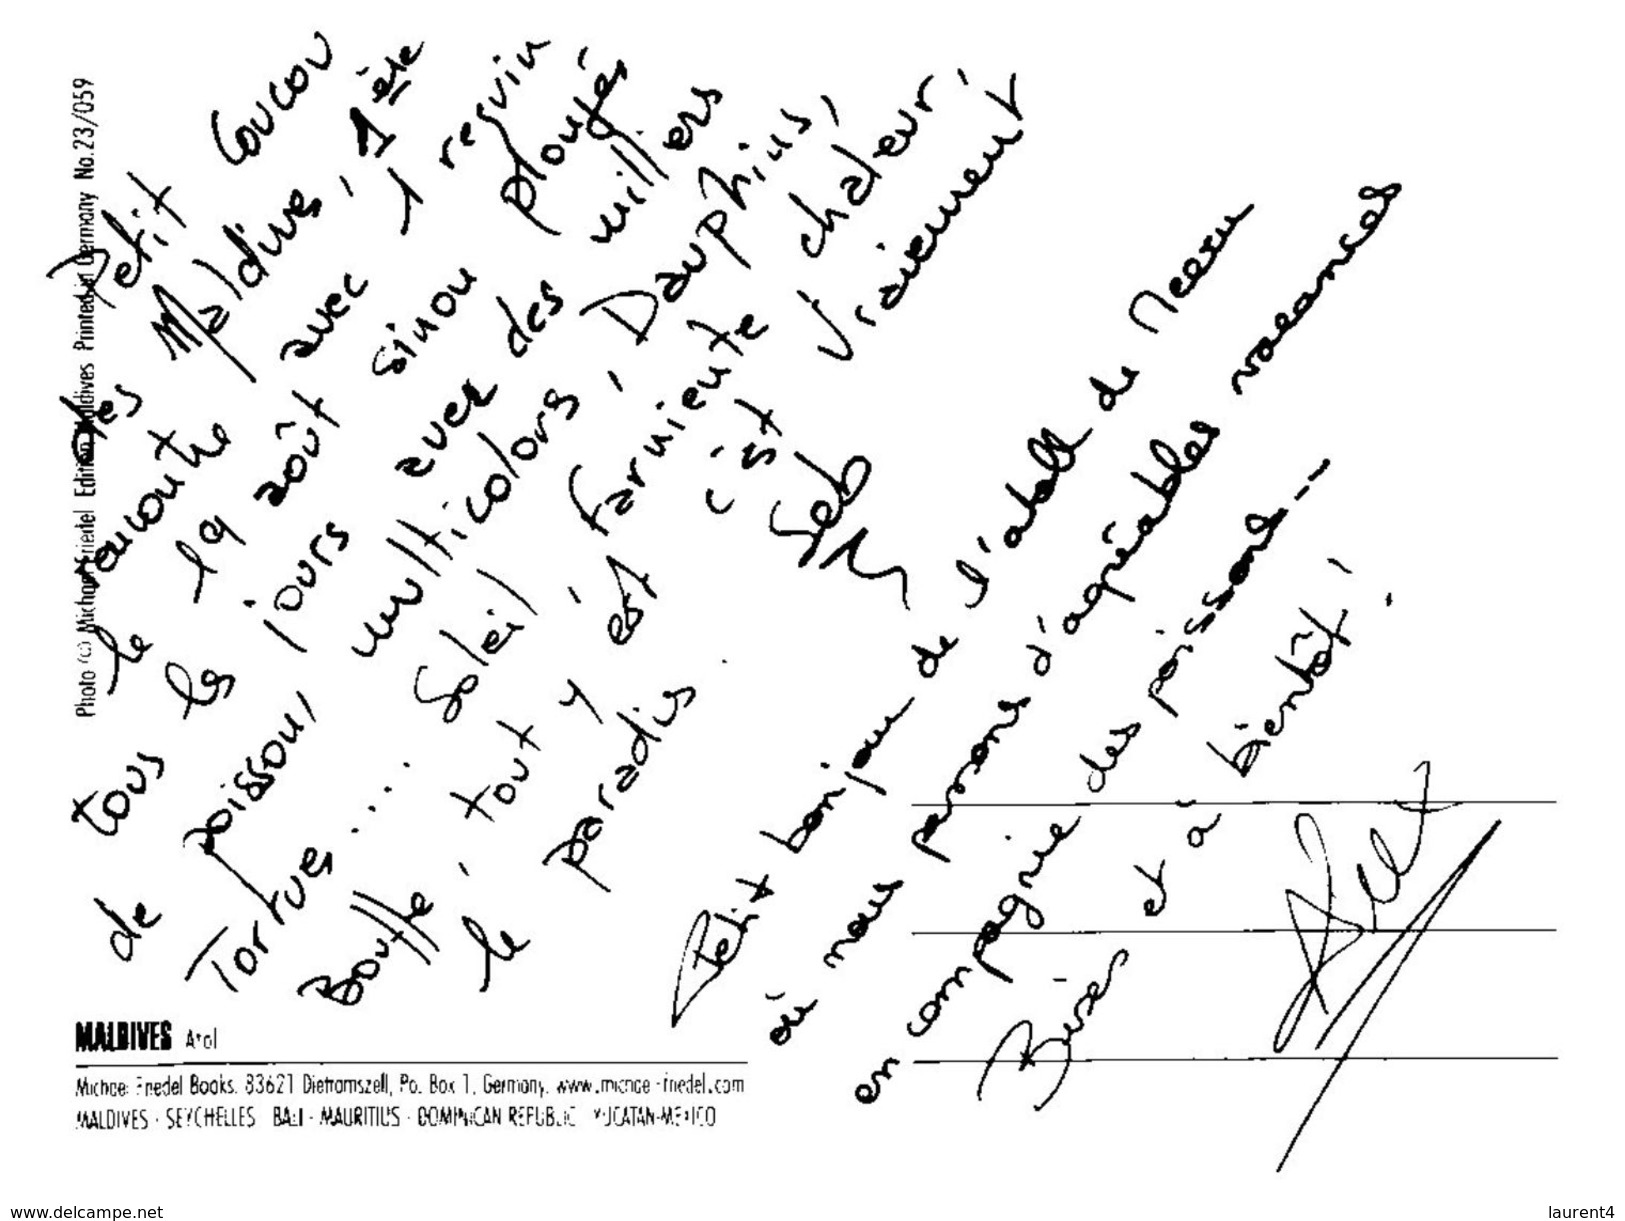 Petit Coucou
des Maldives, 1ère
rencontre avec 1 requin
le 19 août sinon plongés
tous les jours avec des milliers
de poisson, multicolors, Dauphins,
Tortues.... Soleil, farniente chaleur,
Bouffe, tout y est c'est Vraiement
le paradis. Seb
Petit bonjour de l'atoll de Meeru
où nous passons d'agréables vacances
en compagnie des poissons...
Bises et à bientôt!
Photo (c) Michael Friedel Edition Maldives Printed in Germany No. 23/059
MALDIVES Atol
Michael Friedel Books. 83621 Dietramszell, Po. Box 1, Germany. www.michael-friedel.com
MALDIVES · SEYCHELLES · BALI · MAURITIUS · DOMINICAN REPUBLIC · YUCATAN-MEXICO
www.delcampe.net
laurent4